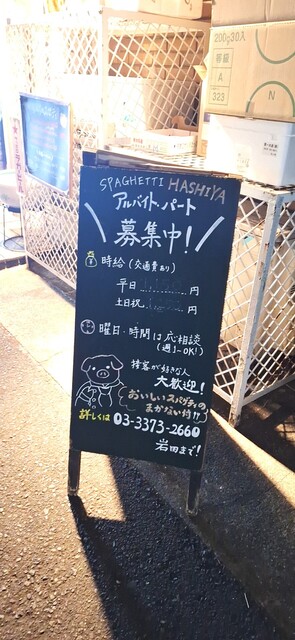 SPAGHETTI HASHIYA
アルバイト・パート
募集中!
時給(交通費あり)
平日 円
土日祝 円
曜日・時間は応相談
(週1~OK!)
接客が好きな人
大歓迎!
おいしいスパゲティの
まかない付!!
詳しくは 03-3373-2660
岩田まで!
200g30入
A
323
N